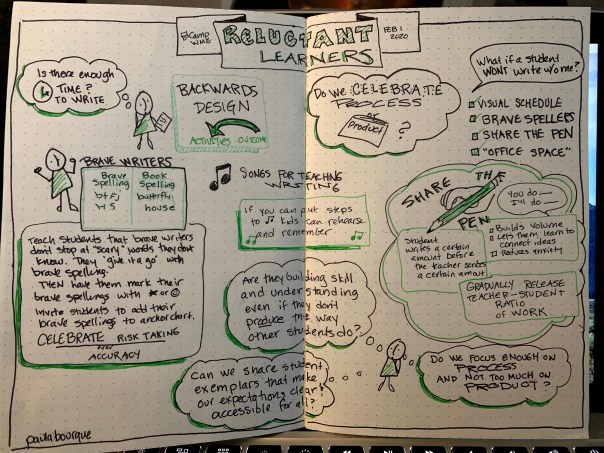 EdCamp
WME
RELUCTANT
LEARNERS
FEB 1
2020
Is there enough
TIME?
TO WRITE
BACKWARDS
DESIGN
ACTIVITIES OUTCOME
Do we CELEBRATE
PROCESS
or
Product
?
What if a student
WONT write w/o me?
VISUAL SCHEDULE
BRAVE SPELLERS
SHARE THE PEN
"OFFICE SPACE"
BRAVE WRITERS
Brave
Spelling
Book
Spelling
btfi
butterfly
house
SONGS FOR TEACHING
WRITING
if you can put steps
to ♫ kids can rehearse
and remember
SHARE THE
PEN
You do
I'll do
Student
writes a certain
amount before
the teacher scribes
a certain amount
Builds Volume
Lets them learn to
connect ideas
Reduces anxiety
GRADUALLY RELEASE
TEACHER-STUDENT
RATIO
OF WORK
Teach students that brave writers
don't stop at "scary" words they don't
know. They 'give it a go' with
brave spelling.
THEN have them mark their
brave spellings with * or ☺
Invite students to add their
brave spellings to anchor chart.
CELEBRATE RISK TAKING
over
ACCURACY
Are they building skill
and understanding
even if they don't
produce the way
other students do?
Can we share student
exemplars that make
our expectations clear?
accessible for all?
DO WE FOCUS ENOUGH ON
PROCESS
AND NOT TOO MUCH ON
PRODUCT?
paulabourque